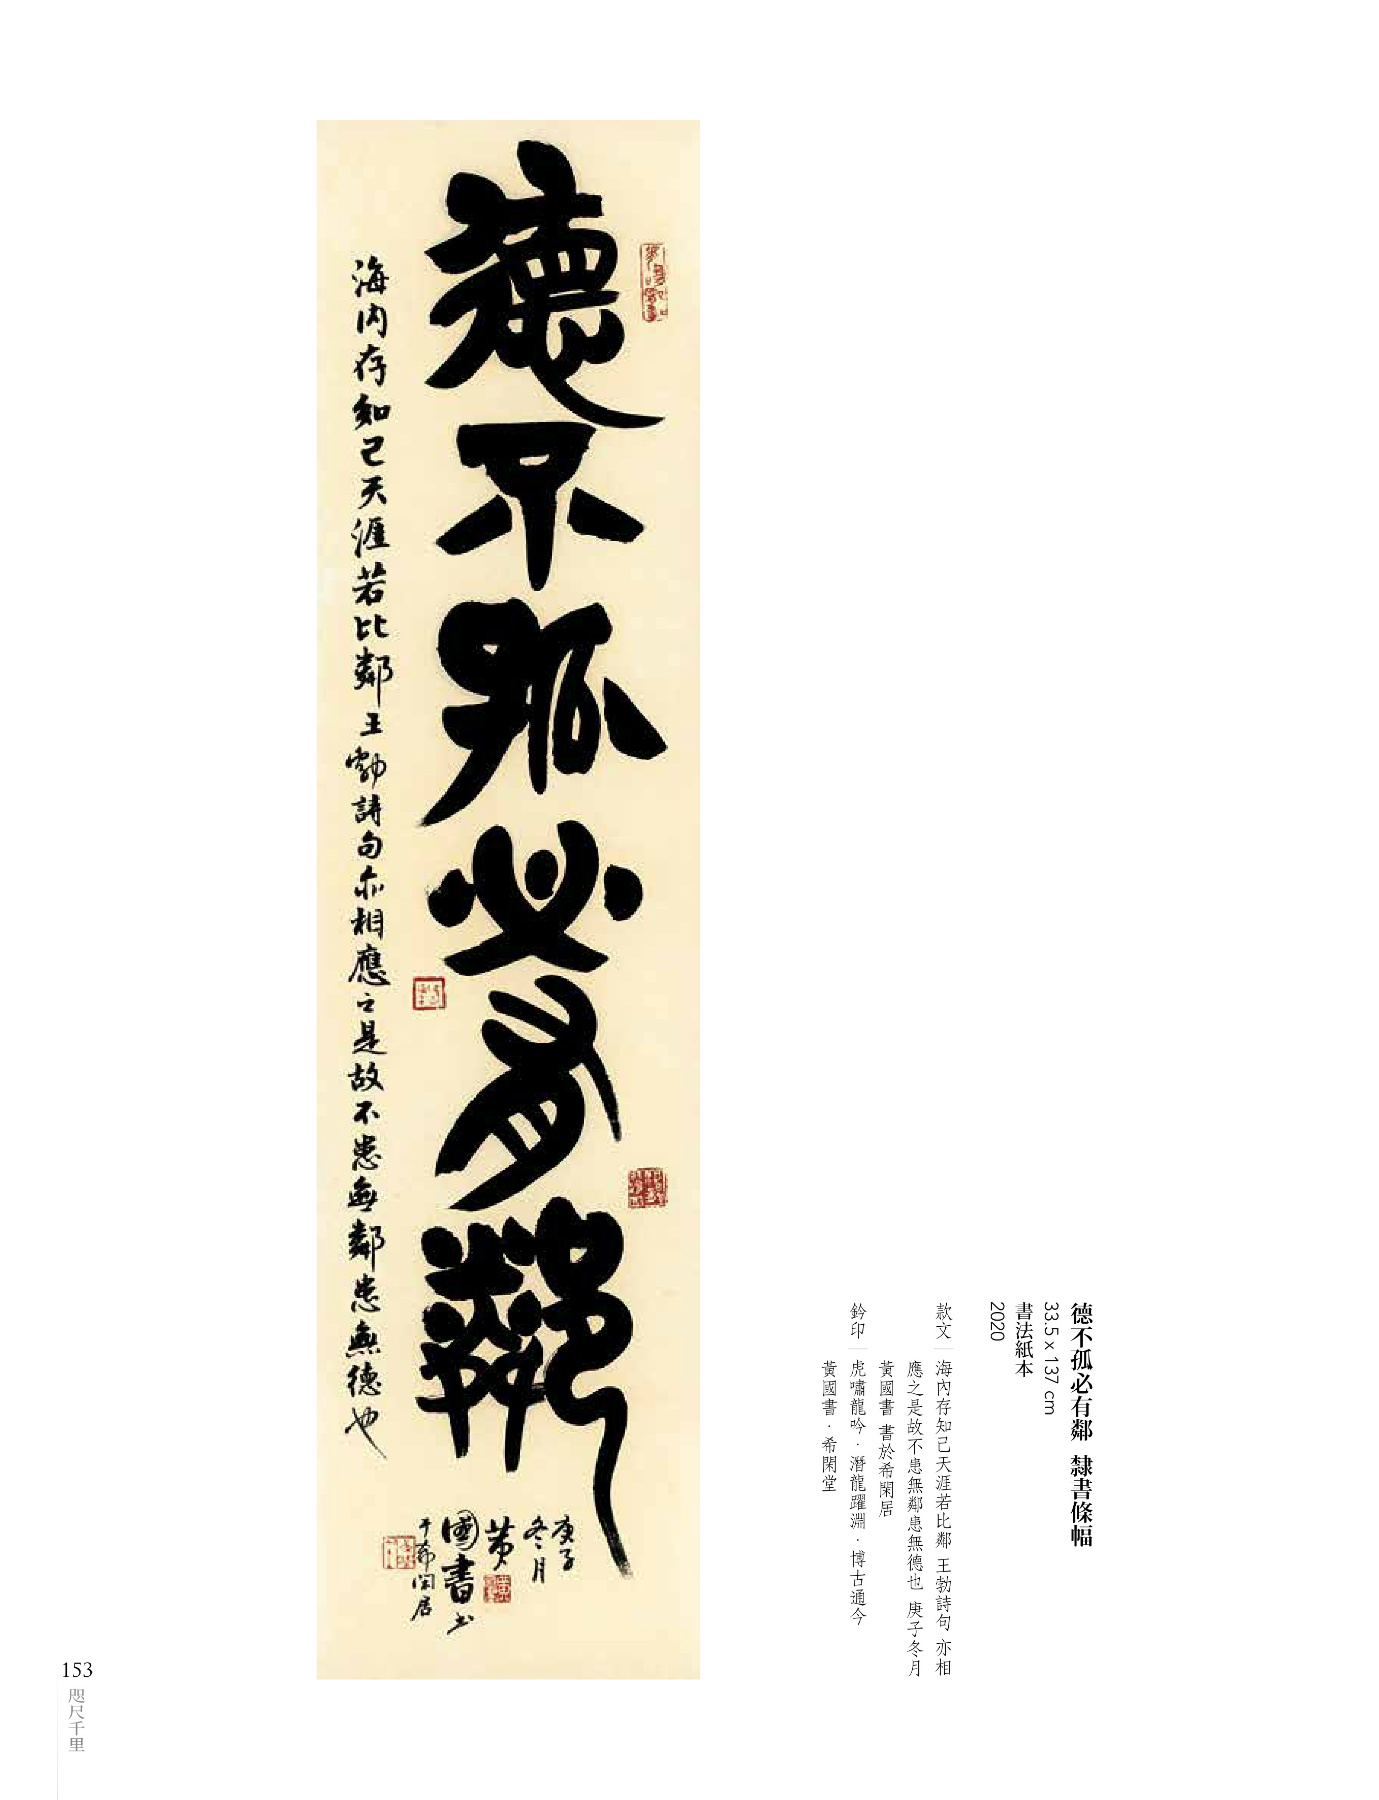 德不孤必有鄰
海內存知己天涯若比鄰王勃詩句亦相應之是故不患無鄰患無德也
庚子
冬月
黃
國書書
于希閑居
德不孤必有鄰 隸書條幅
33.5 x 137 cm
書法紙本
2020
款文｜海內存知己天涯若比鄰 王勃詩句 亦相
應之是故不患無鄰患無德也 庚子冬月
黃國書 書於希閑居
鈐印｜虎嘯龍吟．潛龍躍淵．博古通今
黃國書．希閑堂
153
咫尺千里